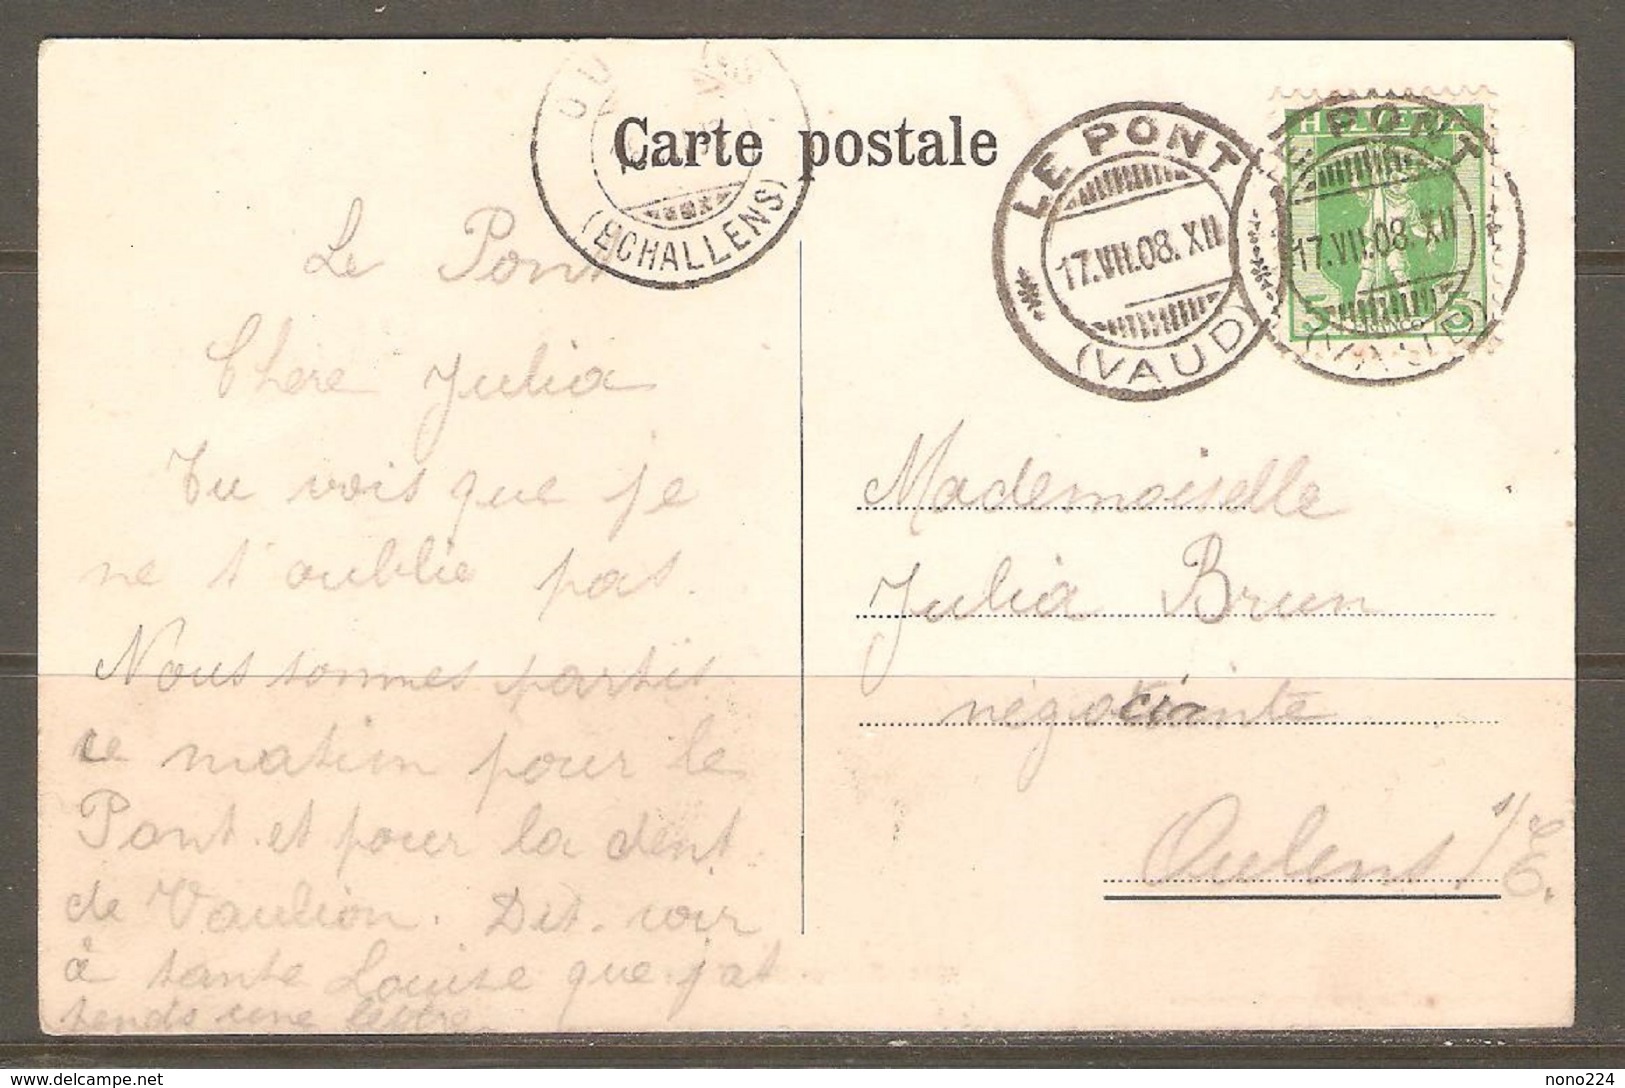 Carte postale
(ECHALLENS)
LE PONT
17.VII.08.XII
(VAUD)
LE PONT
17.VII.08.XII
(VAUD)
HELVETIA
5 5
FRANCO
Le Pont
Chère Julia
Tu vois que je
ne t'oublie pas.
Nous sommes partis
ce matin pour le
Pont et pour la dent
de Vaulion. Dit. voir
à tante Louise que j'at
tends une lettre
Mademoiselle
Julia Brun
négociante
Oulens s/E.
delcampe.net
nono224